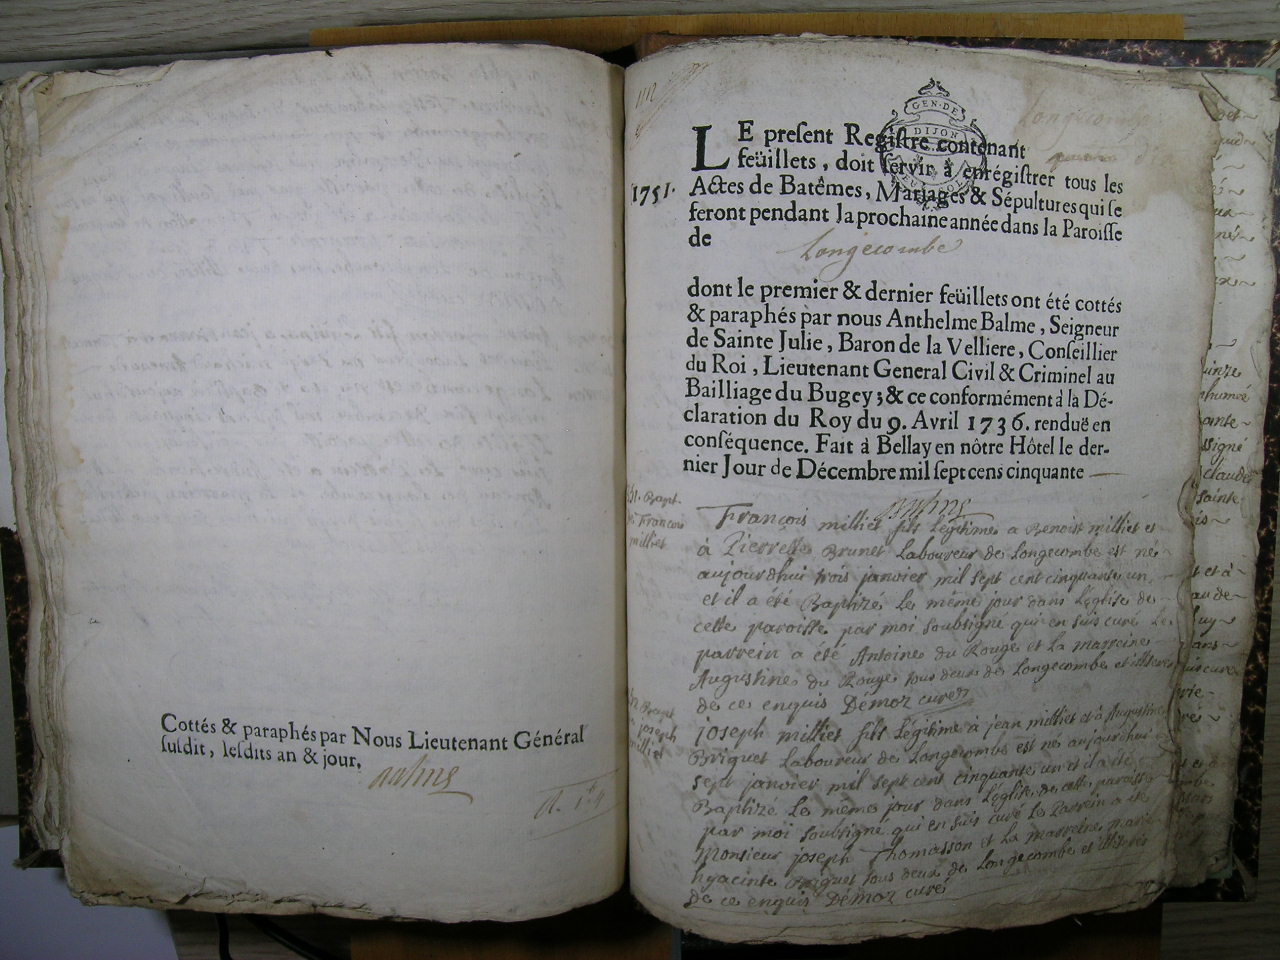 Cottés & paraphés par Nous Lieutenant Général
susdit, lesdits an & jour.
GEN. DE
DIJON
Longecombe
LE present Registre contenant
feüillets, doit servir à enrégistrer tous les
1751.
Actes de Batêmes, Mariages & Sépultures qui se
feront pendant la prochaine année dans la Paroisse
de Longecombe
dont le premier & dernier feüillets ont été cottés
& paraphés par nous Anthelme Balme, Seigneur
de Sainte Julie, Baron de la Velliere, Conseillier
du Roi, Lieutenant General Civil & Criminel au
Bailliage du Bugey; & ce conformément à la Dé-
claration du Roy du 9. Avril 1736. renduë en
conséquence. Fait à Bellay en nôtre Hôtel le der-
nier Jour de Décembre mil sept cens cinquante
Bapt.
François
milliet
François milliet fils Légitime a Benoist milliet et
à Pierrette Brunet Laboureur de Longecombe est né
aujourdhui trois janvier mil sept cent cinquante un
et il a été Baptizé Le même jour dans L'église de
cette paroisse par moi soubsigné qui en suis curé Le
parrein a été Antoine du Rouge et La marreine
Augustine du Rouge tous deux de Longecombe et illiterés
de ce enquis Démoz curé
Bapt
joseph
milliet
joseph milliet fils Légitime à jean milliet et à Augustine
Briguet Laboureur de Longecombe est né aujourdhui
sept janvier mil sept cent cinquante un et il a été
Baptizé Le même jour dans L'église de cette paroisse
par moi soubsigné qui en suis curé Le Parrein a été
Monsieur joseph Thomasson et La marreine marie
hyacinte Briguet tous deux de Longecombe et illiterés
de ce enquis Démoz curé